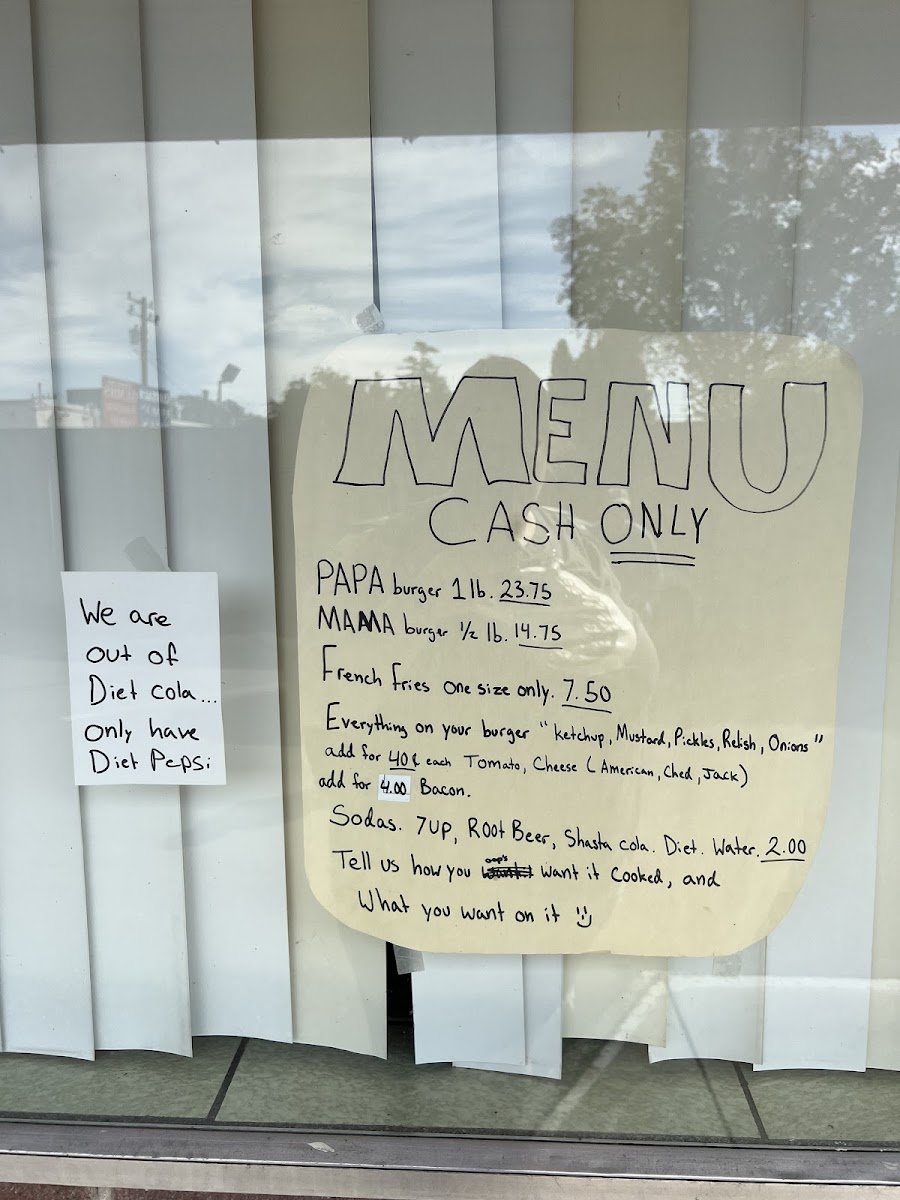 We are
out of
Diet cola...
only have
Diet Pepsi
MENU
CASH ONLY
PAPA burger 1 lb. 23.75
MAMA burger 1/2 lb. 14.75
French Fries one size only. 7.50
Everything on your burger "ketchup, Mustard, Pickles, Relish, Onions"
add for 40¢ each Tomato, Cheese (American, Ched, Jack)
add for 4.00 Bacon.
Sodas. 7up, Root Beer, Shasta cola. Diet. Water. 2.00
oop's
Tell us how you want it Cooked, and
What you want on it :)